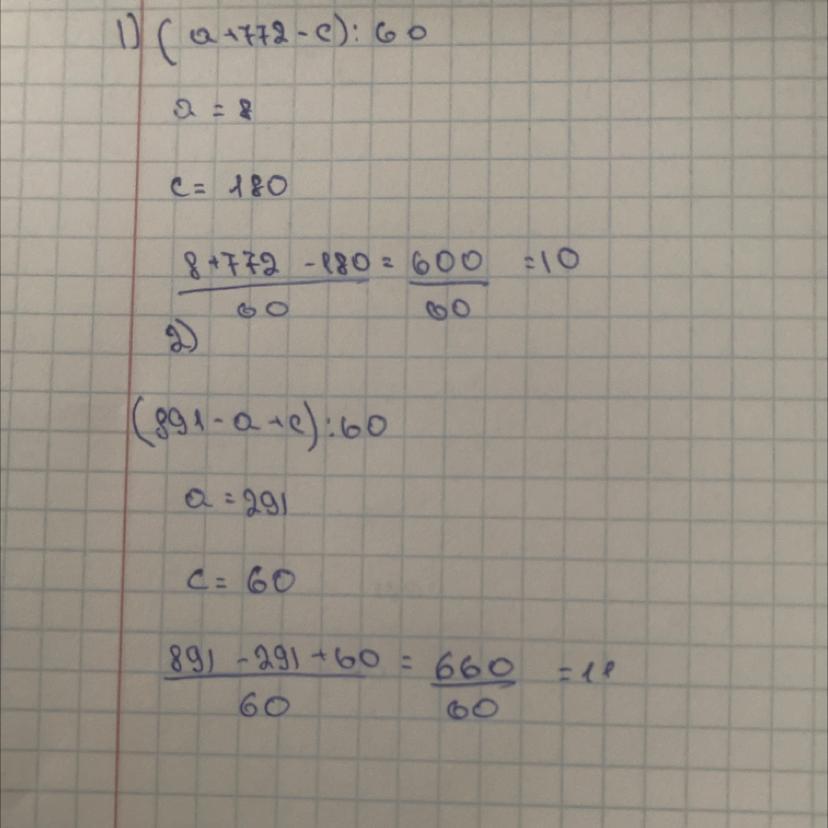 1) (a+772-c):60
a = 8
c = 180
8+772-180/60 = 600/60 = 10
2)
(891-a+c):60
a = 291
c = 60
891-291+60/60 = 660/60 = 11